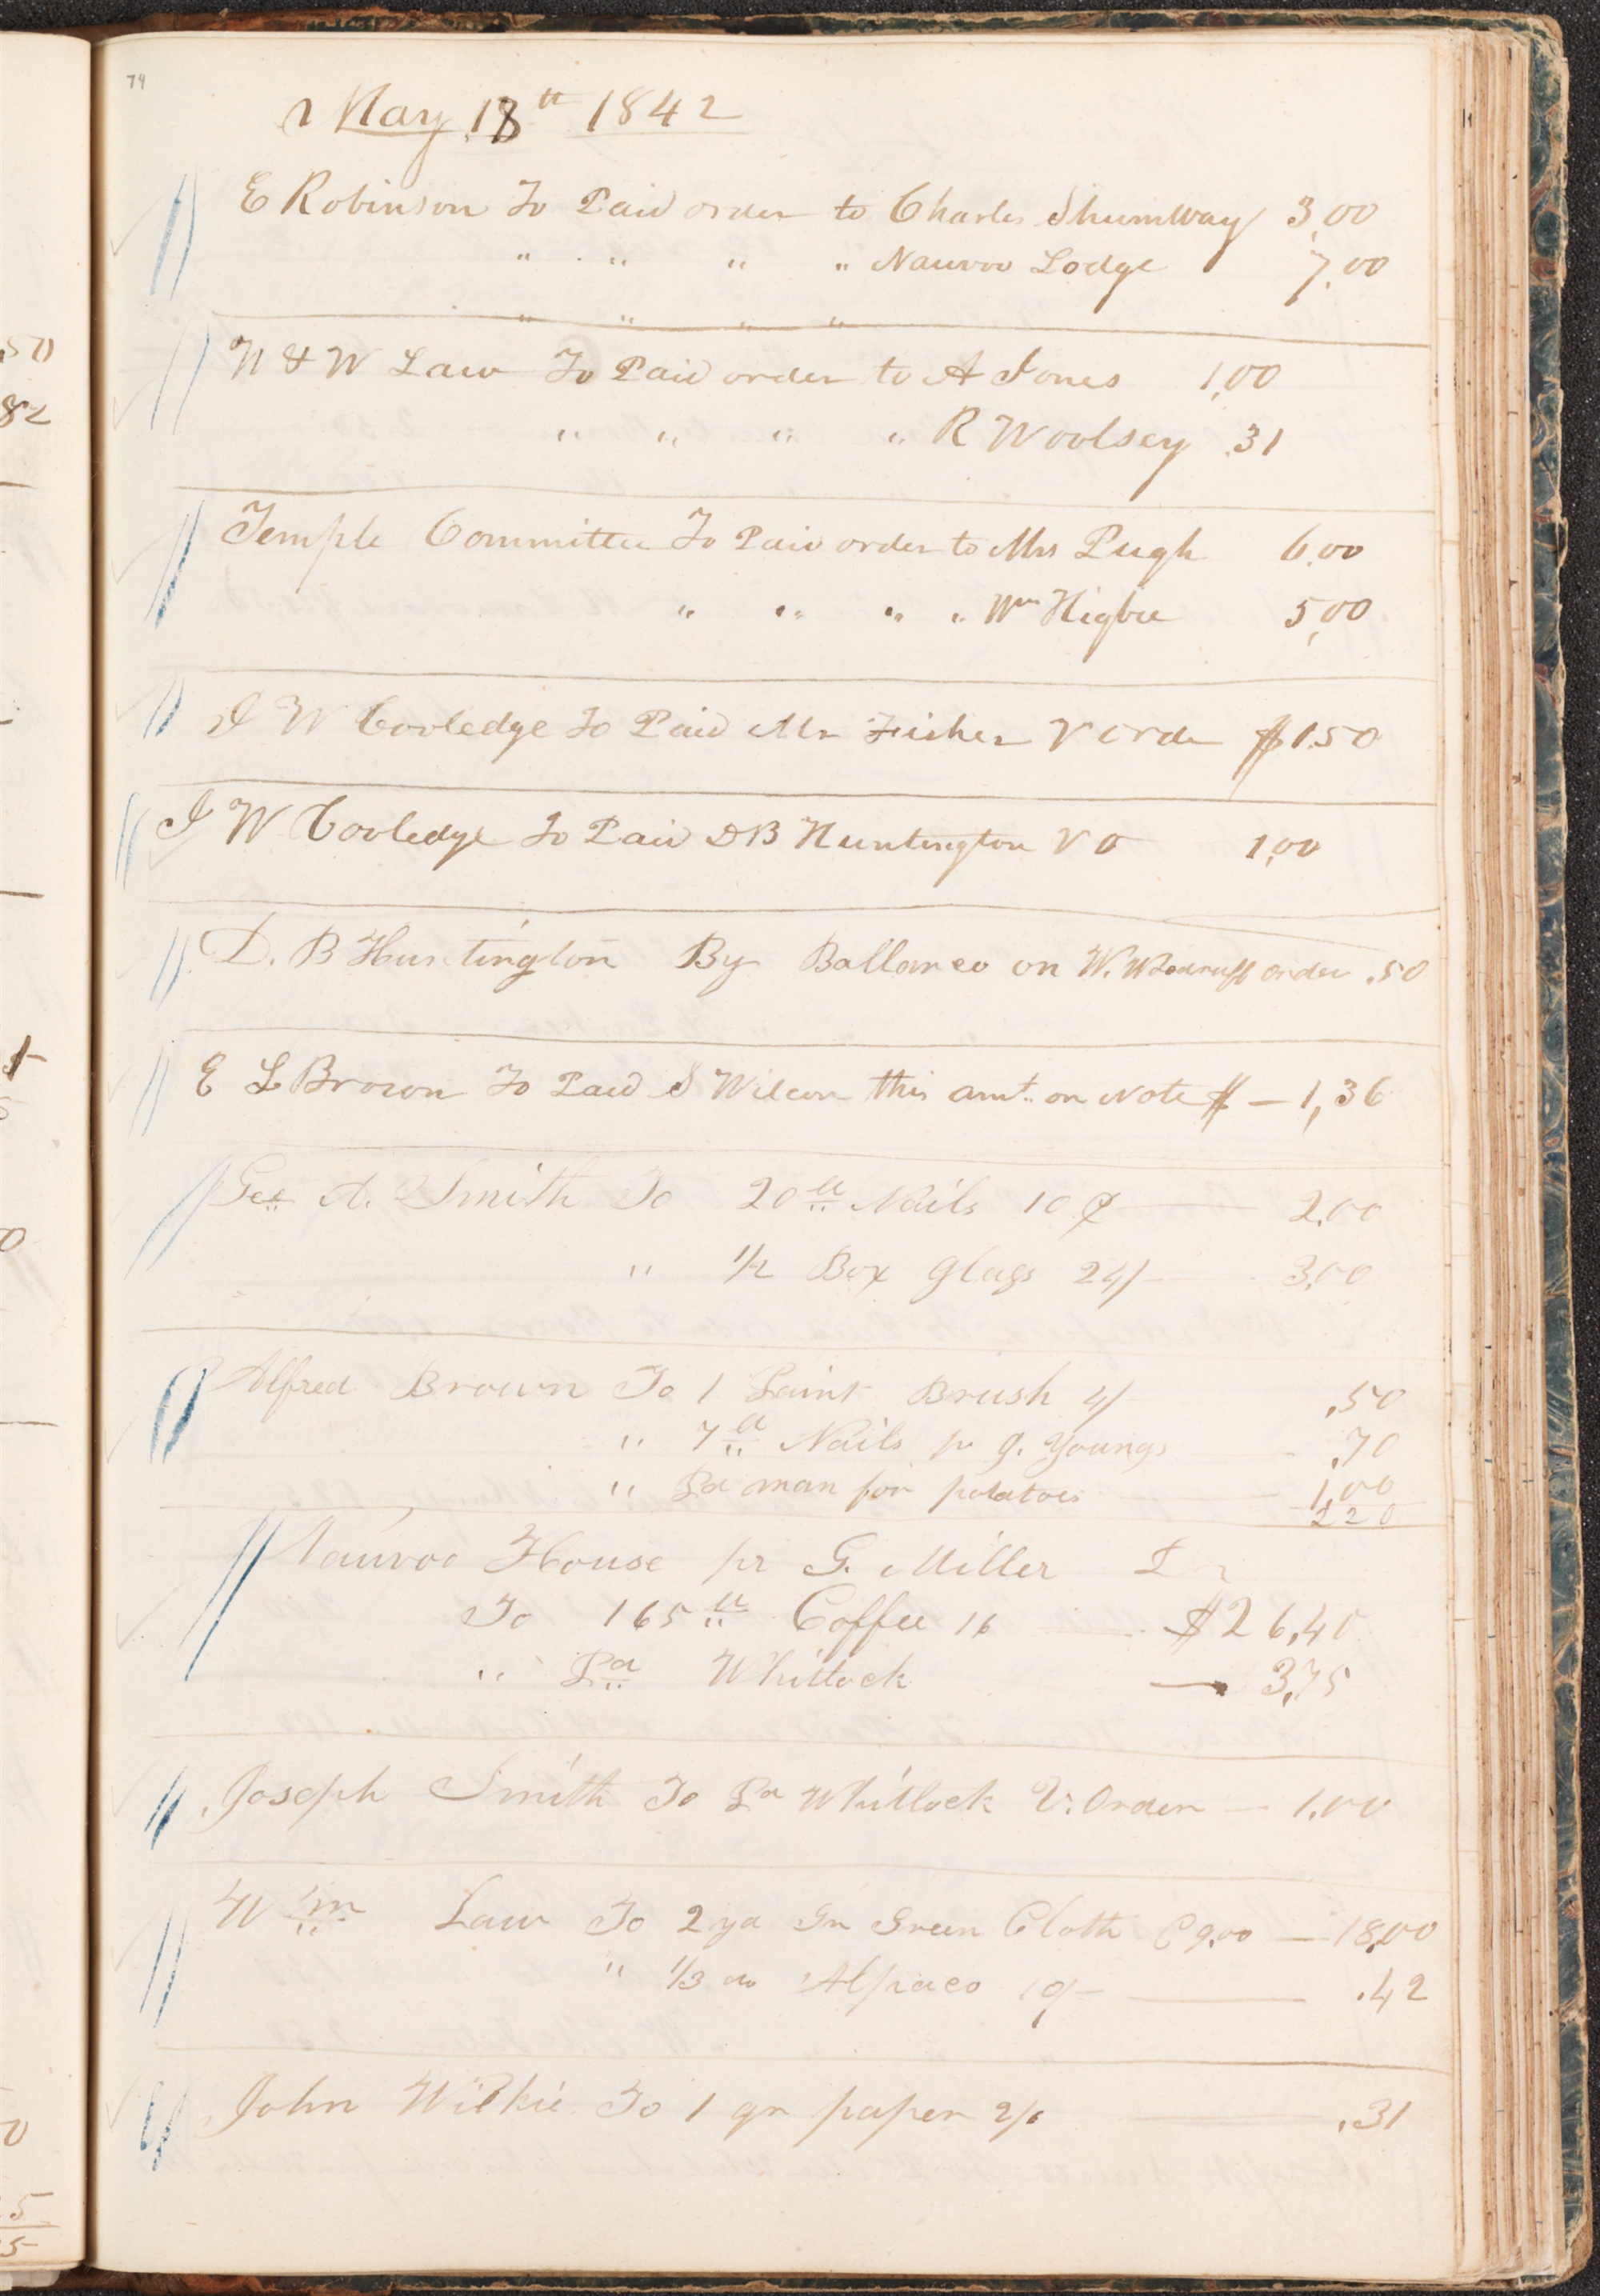 74
May 18th 1842
E Robinson To Paid order to Charles Shumway 3,00
" " " " Nauvoo Lodge 7,00
" " " "
W & W Law To Paid order to A Jones 1,00
" " " " R Woolsey .31
Temple Committee To Paid order to Mrs Pugh 6,00
" " " " Wm Higbee 5,00
J W Cooledge To Paid Mr Fisher V Order $1.50
J W Cooledge To Paid D B Huntington V O 1,00
D. B Huntington By Ballance on W. Woodruff order .50
E L Brown To Paid S Wilcox this amt. on Note $ — 1,36
Geo A. Smith To 20 lb Nails 10 ¢ — 2,00
" 1/2 Box glass 24/ — 3,00
Alfred Brown To 1 Paint Brush 4/ .50
" 7 lb Nails pr J. Youngs — .70
" Pd man for potatoes — 1,00
2 20
Nauvoo House pr G. Miller Dr
To 165 lb Coffee 16 — $26,40
" Pd Whitlock — 3,75
Joseph Smith To Pd Whitlock V. Order — 1,00
Wm Law To 2 yd In Green Cloth @ 9,00 — 18,00
" 1/3 do Alpaca 10/ — .42
John Wilkie To 1 qr paper 2/6 — .31
50
82
5
5